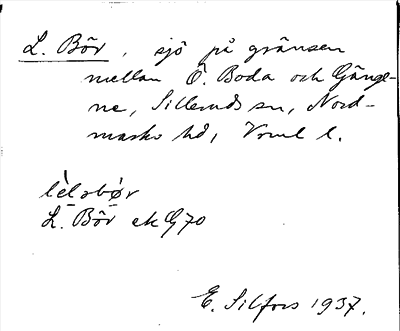 L. Bör, sjö på gränsen
mellan Ö. Boda och Gänge-
ne, Silleruds sn, Nord-
marks hd, Vrml l.
L. Bör ek G70
E. Silfors 1937.